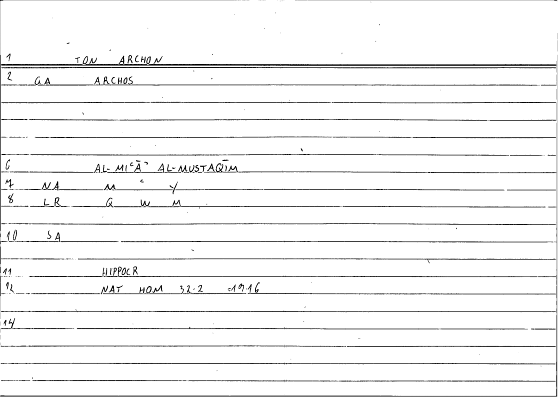 1 TON ARCHON
2 GA ARCHOS
6 AL-MIʿĀʾ AL-MUSTAQĪM
7 NA M ʿ Y
8 LR Q W M
10 SA
11 HIPPOCR
12 NAT HOM 32.2 =19.16
14